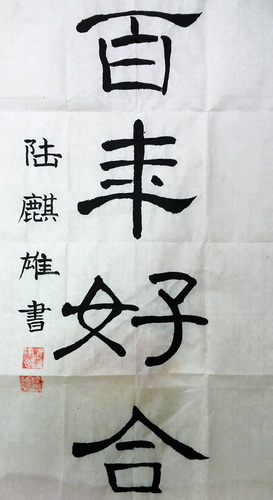 百年好合
陆麒雄書